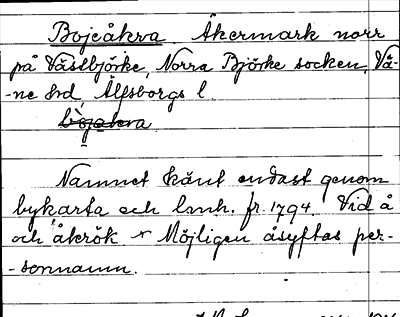 Bojeåkra. Åkermark norr
på Västbjörke, Norra Björke socken, Vä-
-ne hd, Älfsborgs l.
bòjəakra
Namnet känt endast genom
bykarta och lmh. fr. 1794. Vid å
och åkrök × Möjligen åsyftas per-
-sonnamn.